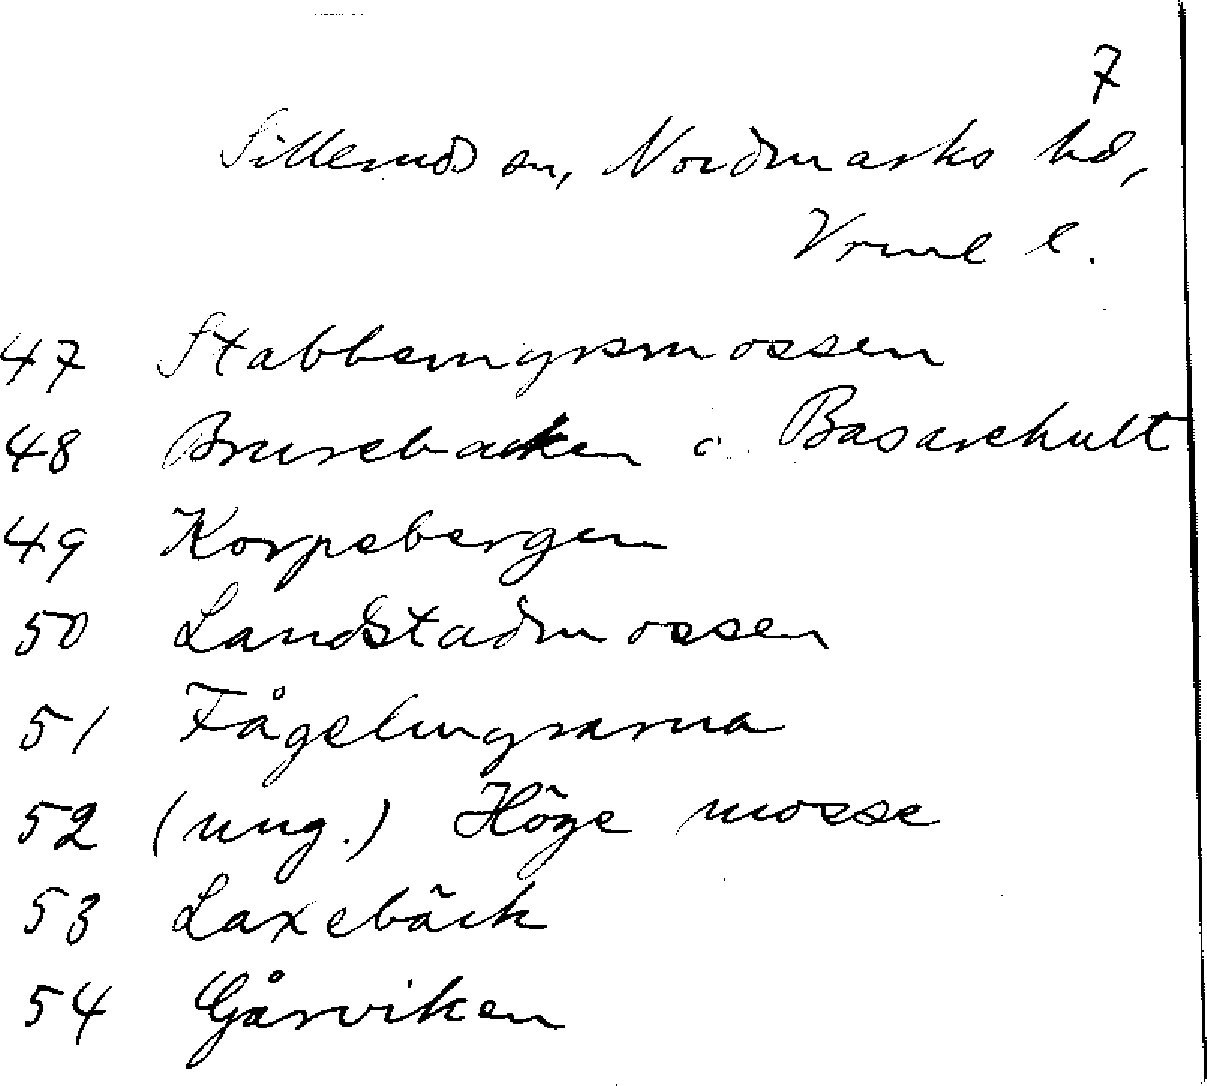 7
Sillerud sn, Nordmarks hd,
Vrml l.
47 Stabbemyrsmossen
48 Brurebacken o. Basarehult
49 Korpebergen
50 Landstadmossen
51 Fågelmyrarna
52 (ung.) Höge mosse
53 Laxebäck
54 Gårviken